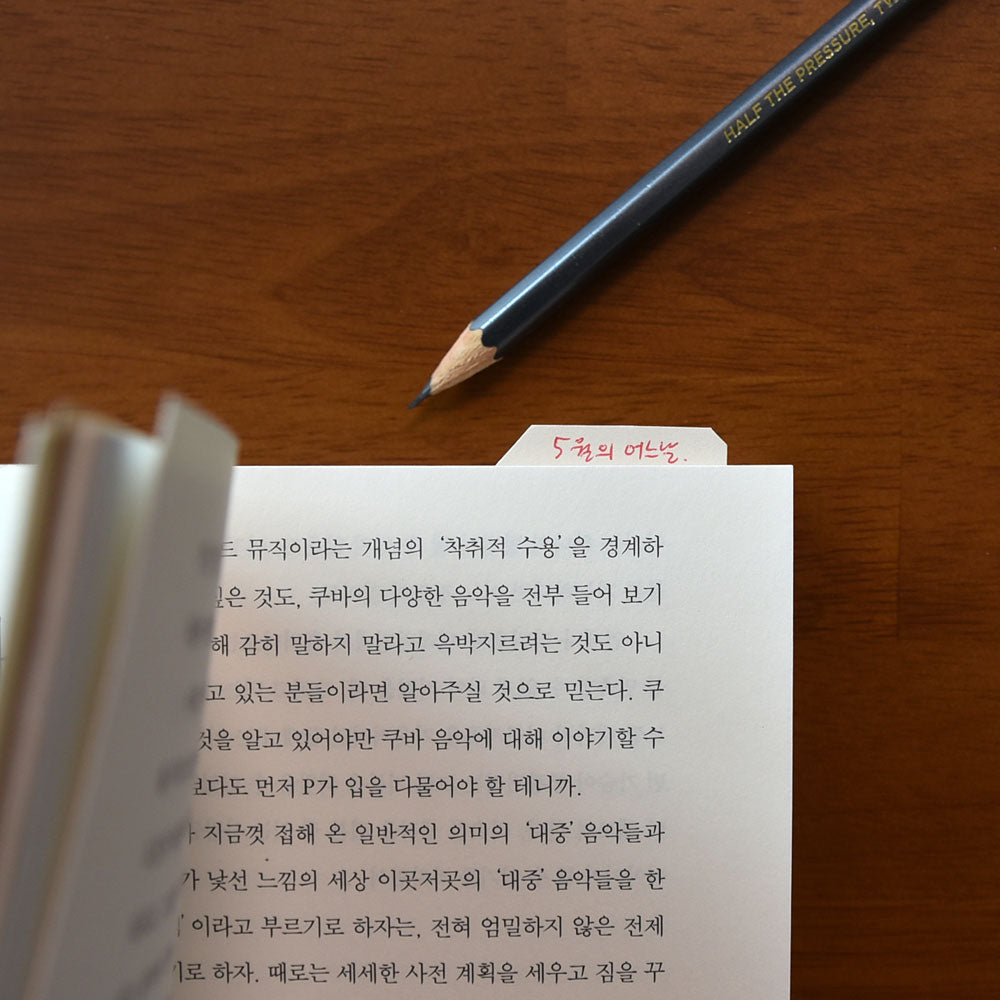 HALF THE PRESSURE,
5월의 어느날.
뮤직이라는 개념의 ‘착취적 수용’을 경계하
것도, 쿠바의 다양한 음악을 전부 들어 보기
해 감히 말하지 말라고 윽박지르려는 것도 아니
고 있는 분들이라면 알아주실 것으로 믿는다. 쿠
것을 알고 있어야만 쿠바 음악에 대해 이야기할 수
보다도 먼저 P가 입을 다물어야 할 테니까.
지금껏 접해 온 일반적인 의미의 ‘대중’ 음악들과
가 낯선 느낌의 세상 이곳저곳의 ‘대중’ 음악들을 한
’이라고 부르기로 하자는, 전혀 엄밀하지 않은 전제
로 하자. 때로는 세세한 사전 계획을 세우고 짐을 꾸